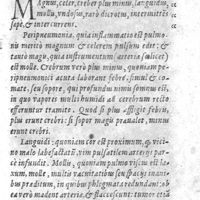 Magnus, celer, creber plus minus, languidus,
mollis, vndosus, raro dicrotus, intermittēs
sæpe, & intercurrens.
Peripneumonia, quia inflammatio est pulmo-
nis meritò magnum & celerem pulsum edet: &
tantò magis, quia instrumentum (arteria scilicet)
est molle. Crebrum verò plus minus, quoniam pe-
ripneumonici acuta laborant febre, simul & co-
mate, seu sopore, qui profundus nimis somnus est,
in quo vapores multi humidi ad cerebrum recto
efferuntur tramite. Quod si plus affligit febis,
plus erunt crebri: si sopor magis prænalet, minus
erunt crebri.
Languidi: quoniam cor est proximum, & vici-
no malo labefactatū, vim pulsatilem arterijs par-
cè infundit. Mollis, quoniam pulmo viscus est la-
xum, molle, multis vacuitatibus seu spacijs inani-
bus præditum, in quibus phlegma redundans: ob
eius madent arteriæ, & flaccescunt: tumor etiā